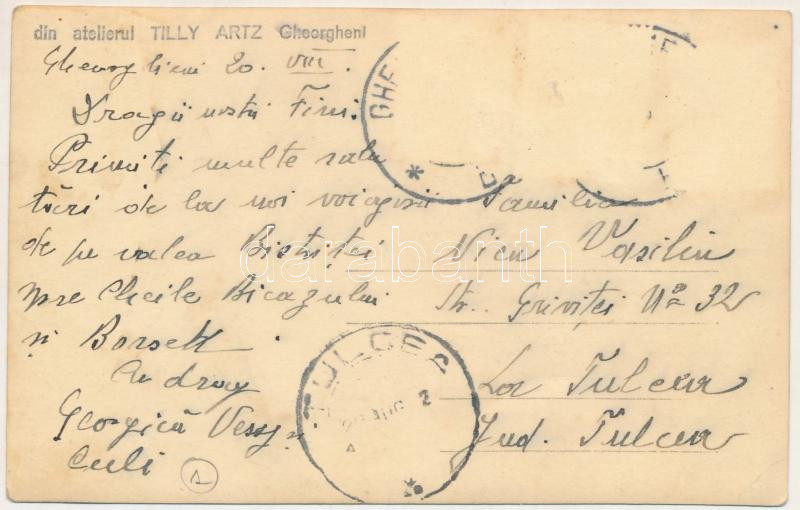 din atelierul TILLY ARTZ Gheorgheni
Gheorghieni 20. VIII.
Dragii noștri Fini.
Primiți multe salu
tări de la noi voiajorii
de pe valea Bistriței
spre Cheile Bicazului
și Borsek
Cu drag
Georgică
Culi
Familia
Nicu Vasiliu
Str. Griviței No 32
La Tulcea
Jud. Tulcea
GHE
TULCEA
darabanth